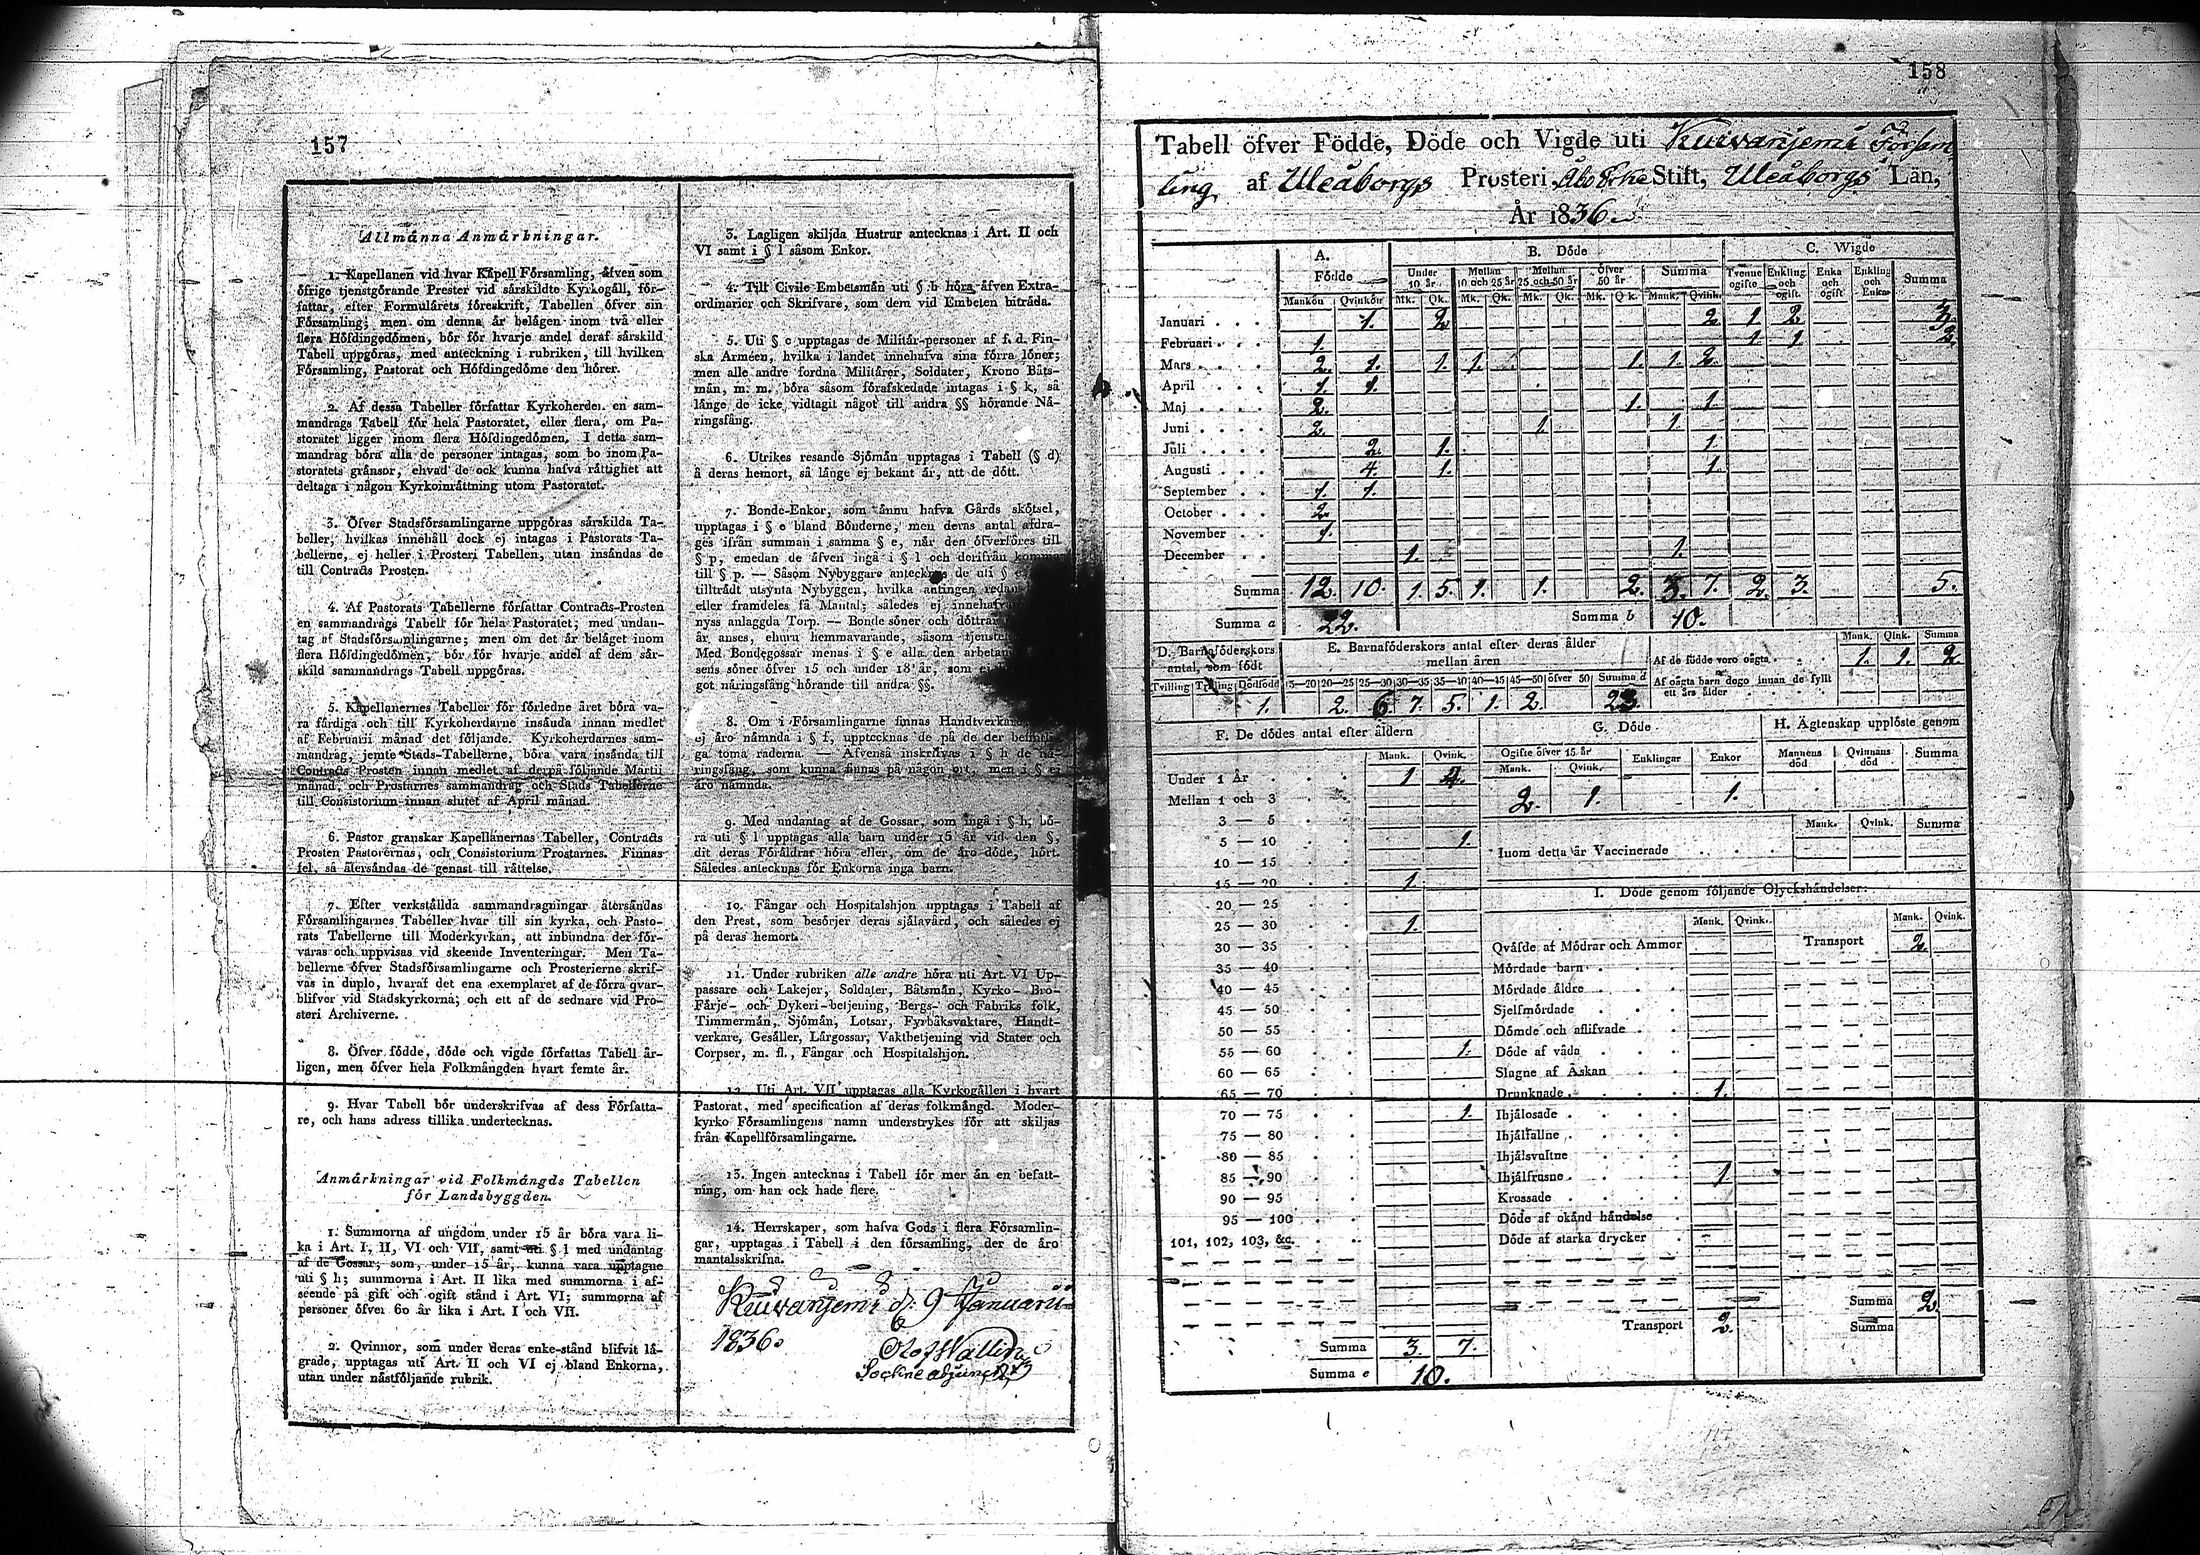 157
Allmänna Anmärkningar.
1. Kapellanen vid hvar Kapell Församling, åfven som
öfrige tjenstgörande Prester vid särskildte Kyrkogäll, för-
fattar, efter Formulärets föreskrift, Tabellen öfver sin
Församling; men om denna är belägen inom två eller
flera Höfdingedömen, bör för hvarje andel deraf särskild
Tabell uppgöras, med anteckning i rubriken, till hvilken
Församling, Pastorat och Höfdingedöme den hörer.
2. Af dessa Tabeller författar Kyrkoherden en sam-
mandrags Tabell för hela Pastoratet, eller flera, om Pa-
storatet ligger inom flera Höfdingedömen. I detta sam-
mandrag böra alla de personer intagas, som bo inom Pa-
storatets gränsor, ehvad de ock kunna hafva rättighet att
deltaga i någon Kyrkoinrättning utom Pastoratet.
3. Öfver Stadsförsamlingarne uppgöras särskilda Ta-
beller; hvilkas innehåll dock ej intagas i Pastorats Ta-
bellerne, ej heller i Prosteri Tabellen, utan insändas de
till Contracts Prosten.
4. Af Pastorats Tabellerne författar Contracts-Prosten
en sammandrags Tabell för hela Pastoratet; med undan-
tag af Stadsförsamlingarne; men om det är beläget inom
flera Höfdingedömen, bör för hvarje andel af dem sär-
skild sammandrags Tabell uppgöras.
5. Kapellanernes Tabeller för förledne året böra va-
ra färdiga och till Kyrkoherdarne insända innan medlet
af Februarii månad det följande. Kyrkoherdarnes sam-
mandrag, jemte Stads-Tabellerne, böra vara insända till
Contracts Prosten innan medlet af derpå följande Martii
månad, och Prostarnes sammandrag och Stads Tabellerne
till Consistorium innan slutet af April månad.
6. Pastor granskar Kapellanernas Tabeller, Contracts
Prosten Pastorernas, och Consistorium Prostarnes. Finnas
fel, så återsändas de genast till rättelse.
7. Efter verkställda sammandragningar återsändas
Församlingarnes Tabeller hvar till sin kyrka, och Pasto-
rats Tabellerne till Moderkyrkan, att inbundna der för-
varas och uppvisas vid skeende Inventeringar. Men Ta-
bellerne öfver Stadsförsamlingarne och Prosterierne skrif-
vas in duplo, hvaraf det ena exemplaret af de förra qvar-
blifver vid Stadskyrkorna; och ett af de sednare vid Pro-
steri Archiverne.
8. Öfver födde, döde och vigde författas Tabell år-
ligen, men öfver hela Folkmängden hvart femte år.
9. Hvar Tabell bör underskrifvas af dess Författa-
re, och hans adress tillika undertecknas.
Anmärkningar vid Folkmängds Tabellen
för Landsbyggden.
1. Summorna af ungdom under 15 år böra vara li-
ka i Art. I, II, VI och VII, samt uti § l med undantag
af de Gossar, som, under 15 år, kunna vara upptagne
uti § h; summorna i Art. II lika med summorna i af-
seende på gift och ogift stånd i Art. VI; summorna af
personer öfver 60 år lika i Art. I och VII.
2. Qvinnor, som under deras enke-stånd blifvit lä-
grade, upptagas uti Art. II och VI ej bland Enkorna,
utan under nästföljande rubrik.
3. Lagligen skiljda Hustrur antecknas i Art. II och
VI samt i § l såsom Enkor.
4. Till Civile Embetsmän uti § b höra äfven Extra-
ordinarier och Skrifvare, som dem vid Embeten biträda.
5. Uti § c upptagas de Militär-personer af f. d. Fin-
ska Armeen, hvilka i landet innehafva sina förra löner;
men alle andre fordna Militärer, Soldater, Krono Båts-
män, m. m. böra såsom förafskedade intagas i § k, så
länge de icke vidtagit något till andra §§ hörande Nä-
ringsfång.
6. Utrikes resande Sjömän upptagas i Tabell (§ d)
å deras hemort, så länge ej bekant är, att de dött.
7. Bonde-Enkor, som ännu hafva Gårds skötsel,
upptagas i § e bland Bönderne, men deras antal afdra-
ges ifrån summan i samma § e, når den öfverföres till
§ p, emedan de äfven ingå i § l och derifrån komma
till § p. — Såsom Nybyggare antecknas de uti §
tillträdt utsynta Nybyggen, hvilka antingen redan
eller framdeles få Mantal; således ej innehafva
nyss anlaggda Torp. — Bonde söner och döttrar
år anses, ehuru hemmavarande, såsom tjenste
Med Bondegossar menas i § e alla den arbetan
sens söner öfver 15 och under 18 år, som ej
got näringsfång hörande till andra §§.
8. Om i Församlingarne finnas Handtverkare
ej äro nämnda i § f, upptecknas de på de der
ga toma raderna. — Äfvenså inskrifvas i § h de nä-
ringsfång, som kunna finnas på någon ort, men i § ej
äro nämnda.
9. Med undantag af de Gossar, som ingå i § h, bö-
ra uti § l upptagas alla barn under 15 år vid den §,
dit deras Föräldrar höra eller, om de äro döde, hört.
Således antecknas för Enkorna inga barn.
10. Fångar och Hospitalshjon upptagas i Tabell af
den Prest, som besörjer deras själavård, och således ej
på deras hemort.
11. Under rubriken alle andre höra uti Art. VI Up-
passare och Lakejer, Soldater, Båtsmän, Kyrko- Bro-
Färje- och Dykeri-betjening, Bergs- och Fabriks folk,
Timmermän, Sjömän, Lotsar, Fyrbåksvaktare, Handt-
verkare, Gesäller, Lärgossar, Vaktbetjening vid Stater och
Corpser, m. fl., Fångar och Hospitalshjon.
12. Uti Art. VII upptagas alla Kyrkogällen i hvart
Pastorat, med specification af deras folkmängd. Moder-
kyrko Församlingens namn understrykes för att skiljas
från Kapellförsamlingarne.
13. Ingen antecknas i Tabell för mer än en befatt-
ning, om han ock hade flere.
14. Herrskaper, som hafva Gods i flera Församlin-
gar, upptagas i Tabell i den församling, der de äro
mantalsskrifna.
Kuivanjemi d. 9 Januarii
1836.
Olof Wallin
Sockne adjunct
158
Tabell öfver Födde, Döde och Vigde uti Kuivanjemi Försam
ling af Uleåborgs Prosteri, Åbo Erke Stift, Uleåborgs Län,
År 1836.
A. Födde B. Döde C. Wigde
Under 10 år Mellan 10 och 25 år Mellan 25 och 50 år Öfver 50 år Summa Tvenne ogifte Enkling och ogift Enka och ogift Enkling och Enka Summa
Mankön Qvinkön Mk. Qk. Mk. Qk. Mk. Qk. Mk. Qk. Mank. Qvink.
Januari 1. 2 2 1 2 3
Februari 1. 1 1 2.
Mars 2. 1. 1 1. 1. 1. 2.
April 1. 1.
Maj 2. 1. 1.
Juni 2. 1. 1.
Juli 2. 1. 1.
Augusti 4. 1. 1.
September 1. 1.
October 2.
November 1.
December 1. 1.
Summa 12. 10. 1. 5. 1. 1. 2. 3. 7. 2. 3. 5.
Summa a 22. Summa b 10.
D. Barnaföderskors antal, som födt
Tvilling Trilling Dödfödd
1.
E. Barnaföderskors antal efter deras ålder mellan åren
15—20 20—25 25—30 30—35 35—40 40—45 45—50 öfver 50 Summa d
2. 6 7. 5. 1. 2. 23.
Mank. Qink. Summa
Af de födde voro oägta 1. 1. 2
Af oägta barn dogo innan de fyllt ett års ålder
F. De dödes antal efter åldern
Mank. Qvink.
Under 1 År 1 4.
Mellan 1 och 3
3 — 5
5 — 10 1.
10 — 15
15 — 20 1.
20 — 25
25 — 30 1.
30 — 35
35 — 40
40 — 45
45 — 50
50 — 55
55 — 60 1.
60 — 65
65 — 70
70 — 75 1.
75 — 80
80 — 85
85 — 90
90 — 95
95 — 100
101, 102, 103, &c.
Summa 3. 7.
Summa e 10.
G. Döde
Ogifte öfver 15 år Enklingar Enkor
Mank. Qvink.
2. 1. 1.
H. Ägtenskap upplöste genom
Mannens död Qvinnans död Summa
Mank. Qvink. Summa
Inom detta år Vaccinerade
I. Döde genom följande Olyckshändelser:
Mank. Qvink. Mank. Qvink.
Qväfde af Mödrar och Ammor Transport 2.
Mördade barn
Mördade äldre
Sjelfmördade
Dömde och aflifvade
Döde af våda
Slagne af Åskan
Drunknade 1.
Ihjälosade
Ihjälfallne
Ihjälsvultne
Ihjälfrusne 1.
Krossade
Döde af okänd händelse
Döde af starka drycker
Summa 2.
Transport 2. Summa